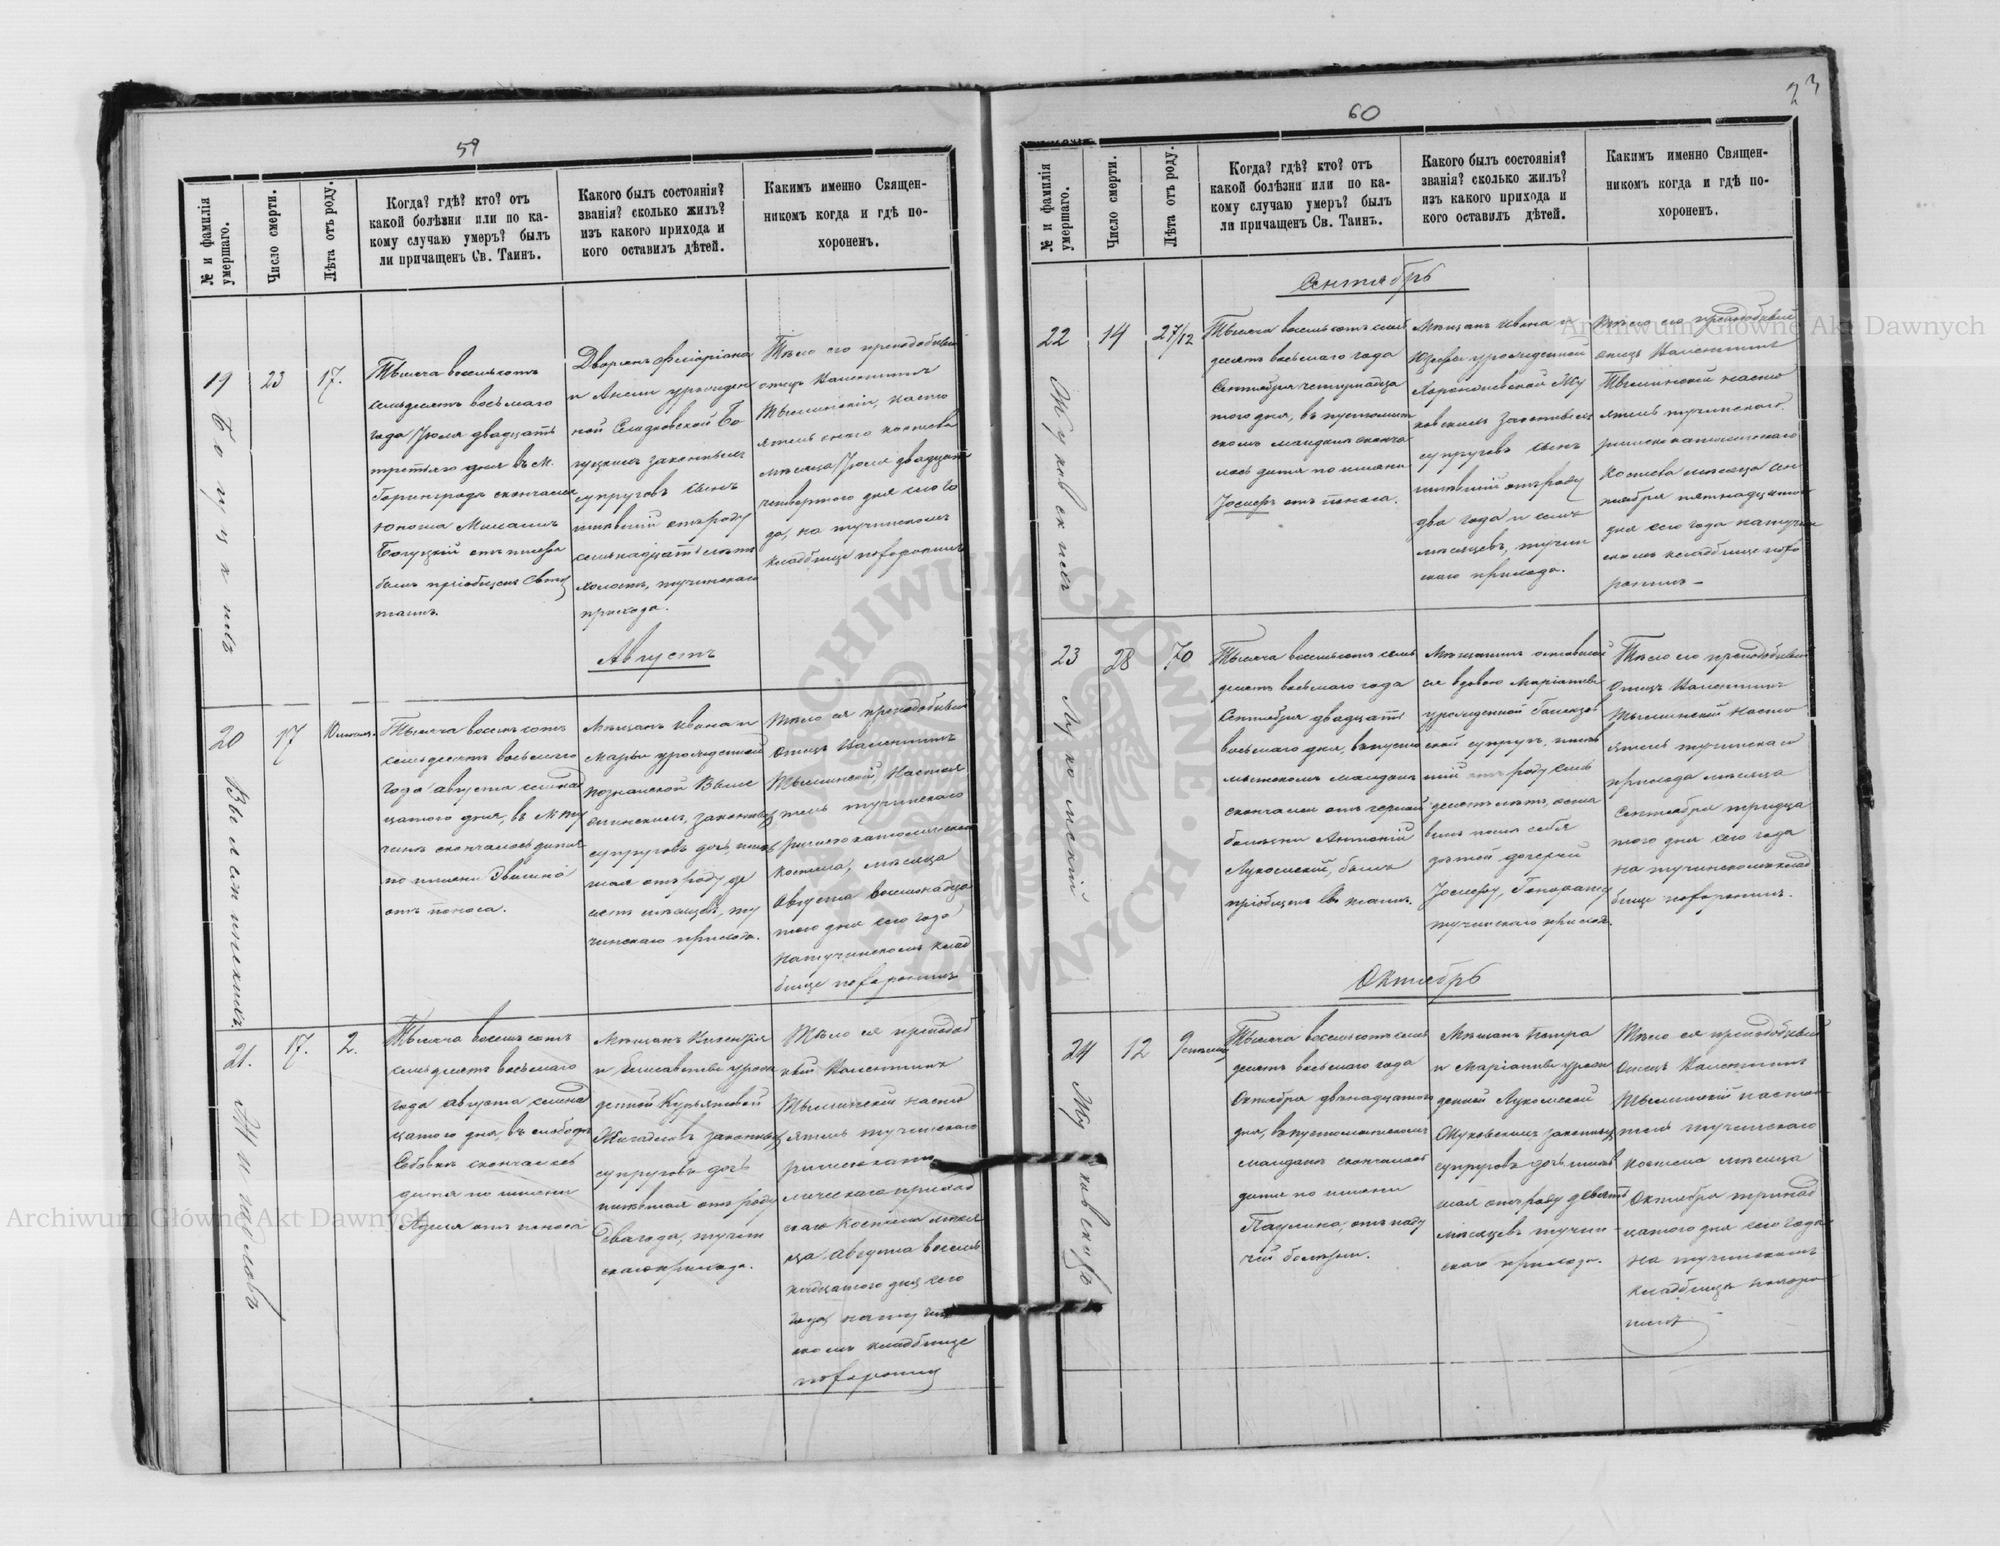 59
№ и фамилія умершаго.
Число смерти.
Лѣта отъ роду.
Когда? гдѣ? кто? отъ
какой болѣзни или по ка-
кому случаю умеръ? былъ
ли причащенъ Св. Таинъ.
Какого былъ состоянія?
званія? сколько жилъ?
изъ какого прихода и
кого оставилъ дѣтей.
Какимъ именно Священ-
никомъ когда и гдѣ по-
хороненъ.
19
23
17.
Тысяча восемьсотъ
семьдесятъ восьмаго
года Іюля двадцать
третьяго дня въ м.
скончался
юноша
Богуцкій отъ
былъ пріобщенъ Свят
таинъ.
Дворянъ Флоріана
и
ной Бо
гуцкихъ законныхъ
супруговъ сынъ
имѣвшій отъ роду
семьнадцать лѣтъ
холостъ, тучинскаго
прихода.
Тѣло его преподобный
отецъ Валентинъ
Тышинскій, насто
ятель
мѣсяца Іюля двадцать
четвертаго дня сего го
да, на тучинскомъ
кладбище похоронилъ
Августъ
20
17
Тысяча восемьсотъ
семьдесятъ восьмаго
года августа семнад
цатого дня, въ м. Ту
чинѣ скончалось дитя
по имени
отъ поноса.
Мѣщанъ Ивана и
Марьи урожденной
Познанской
законныхъ
супруговъ дочь,
шая отъ роду де
сять мѣсяцевъ, ту
чинскаго прихода.
Тѣло ея преподобный
отецъ Валентинъ
Тышинскій, Настоя
тель тучинскаго
римско католическаго
костела, мѣсяца
Августа восемнадца
того дня сего года
на тучинскомъ клад
бище похоронилъ
21.
17.
2.
Тысяча восемьсотъ
семьдесятъ восьмаго
года августа семнад
цатого дня, въ слободѣ
скончалось
дитя по имени
отъ поноса
Мѣщанъ
и Елисаветы урож
денной
законныхъ
супруговъ дочь
имѣвшая отъ роду
два года, тучин
скаго прихода.
Тѣло ея преподоб
ный Валентинъ
Тышинскій насто
ятель тучинскаго
римско като
лическаго приход
скаго костела мѣся
ца августа восемь
надцатого дня сего
года на тучин
скомъ кладбище
похоронилъ
60
23
№ и фамилія умершаго.
Число смерти.
Лѣта отъ роду.
Когда? гдѣ? кто? отъ
какой болѣзни или по ка-
кому случаю умеръ? былъ
ли причащенъ Св. Таинъ.
Какого былъ состоянія?
званія? сколько жилъ?
изъ какого прихода и
кого оставилъ дѣтей.
Какимъ именно Священ-
никомъ когда и гдѣ по-
хороненъ.
Сентябрь
22
Жуковскихъ
14
2 7/12
Тысяча восемьсотъ семь
десятъ восьмаго года
Сентября четырнадца
того дня, въ
скомъ майданѣ сконча
лось дитя по имени
Іосифъ отъ поноса.
Мѣщанъ Ивана и
Юзефы урожденной
Жу
ковскихъ законныхъ
супруговъ сынъ
имѣвшій отъ роду
два года и семь
мѣсяцевъ, тучин
скаго прихода.
Тѣло его преподобный
отецъ Валентинъ
Тышинскій насто
ятель тучинскаго
римско католическаго
костела мѣсяца сен
тября пятнадцатого
дня сего года на тучин
скомъ кладбище похо
ронилъ
23
Лукомскій
28
70
Тысяча восемьсотъ семь
десятъ восьмаго года
Сентября двадцать
восьмаго дня, въ пусто
мытскомъ майданѣ
скончался отъ
болѣзни Антоній
Лукомскій, былъ
пріобщенъ Св таинъ.
Мѣщанинъ
ся вдовою Маріанны
урожденной
ской супругъ,
шій отъ роду семь
десятъ лѣтъ, оста
вилъ послѣ себя
дѣтей дочерей
Іосифу,
тучинскаго прихода.
Тѣло его преподобный
Отецъ Валентинъ
Тышинскій насто
ятель тучинскаго
прихода мѣсяца
Сентября тридца
того дня сего года
на тучинскомъ клад
бище похоронилъ.
Октябрь
24
Жуковскихъ
12
9 мѣсяц
Тысяча восемьсотъ семь
десятъ восьмаго года
Октября двѣнадцатого
дня, въ пустомытскомъ
майданѣ скончалось
дитя по имени
Паулина, отъ паду
чей болѣзни.
Мѣщанъ Петра
и Маріанны урож
денной Лукомской
Жуковскихъ законныхъ
супруговъ дочь имѣв
шая отъ роду девять
мѣсяцевъ тучин
скаго прихода.
Тѣло ея преподобный
Отецъ Валентинъ
Тышинскій настоя
тель тучинскаго
костела мѣсяца
Октября тринад
цатого дня сего года
на тучинскомъ
кладбище похоро
нилъ
Archiwum Główne Akt Dawnych
Archiwum Główne Akt Dawnych
ARCHIWUM GŁÓWNE AKT DAWNYCH